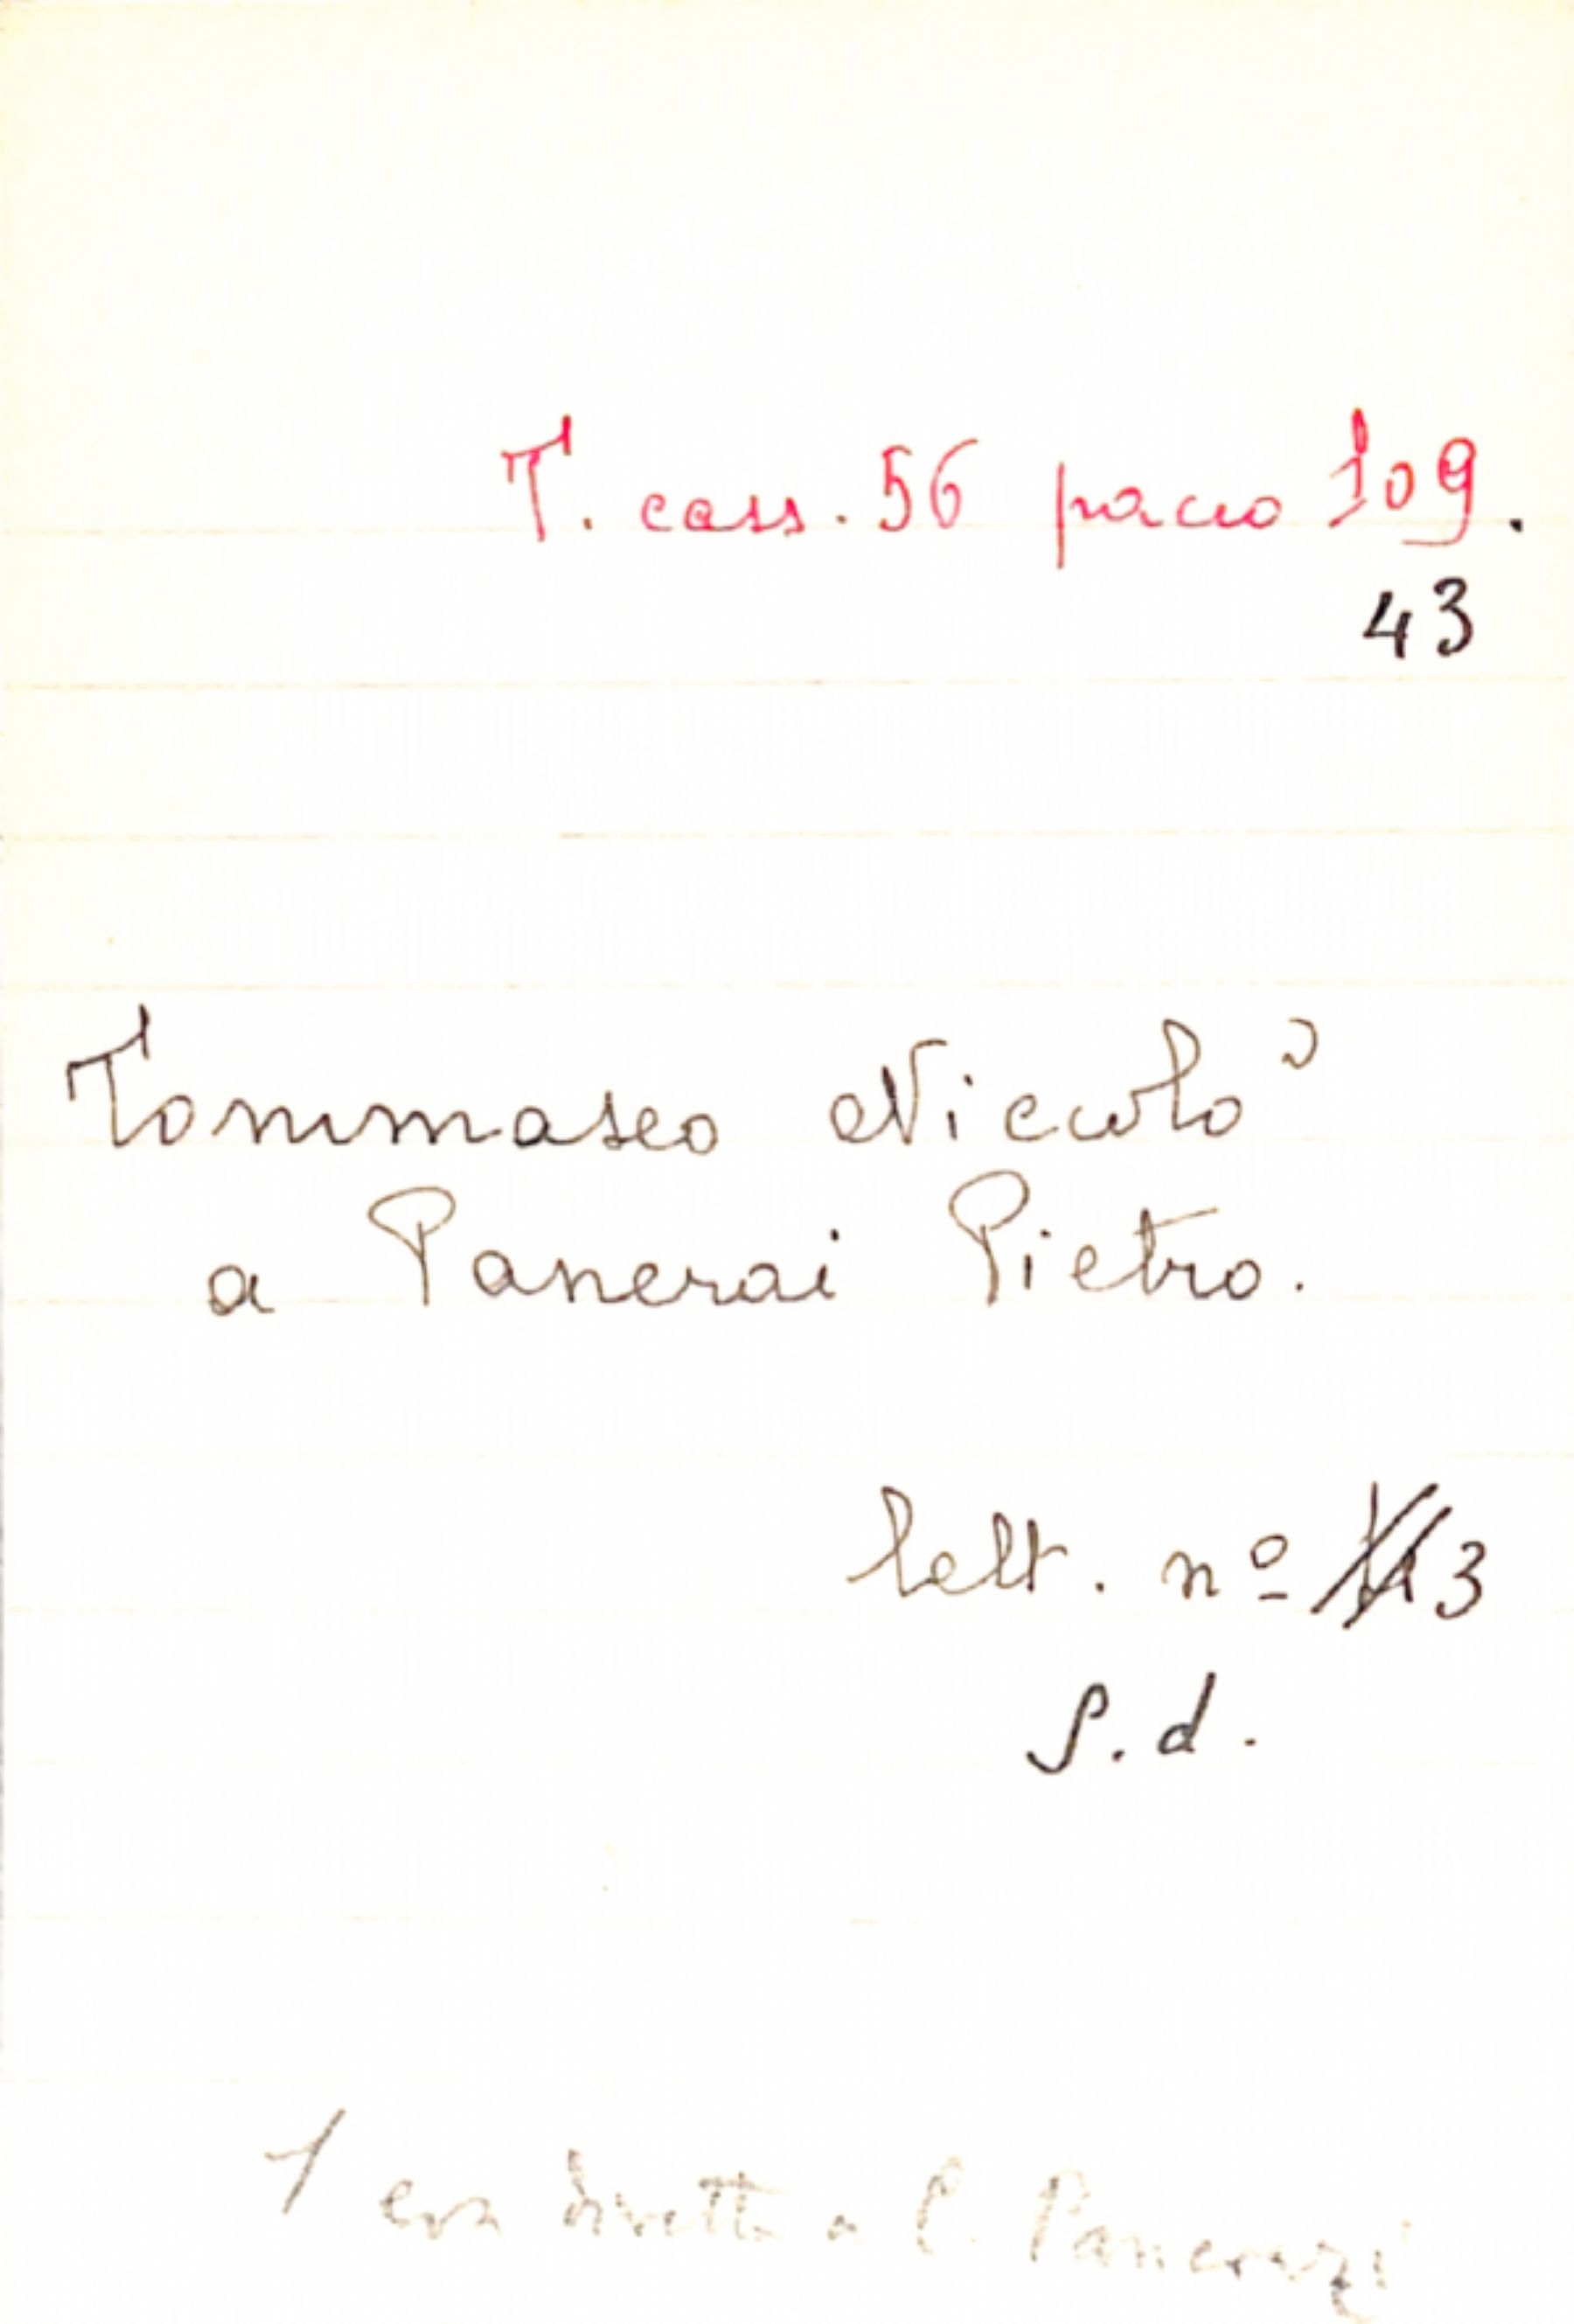 T. cass. 56 pacco 109.
43
Tommaseo Niccolò
a Panerai Pietro.
lett. nº 3
S. d.
1 era diretta a P. Pancrazi